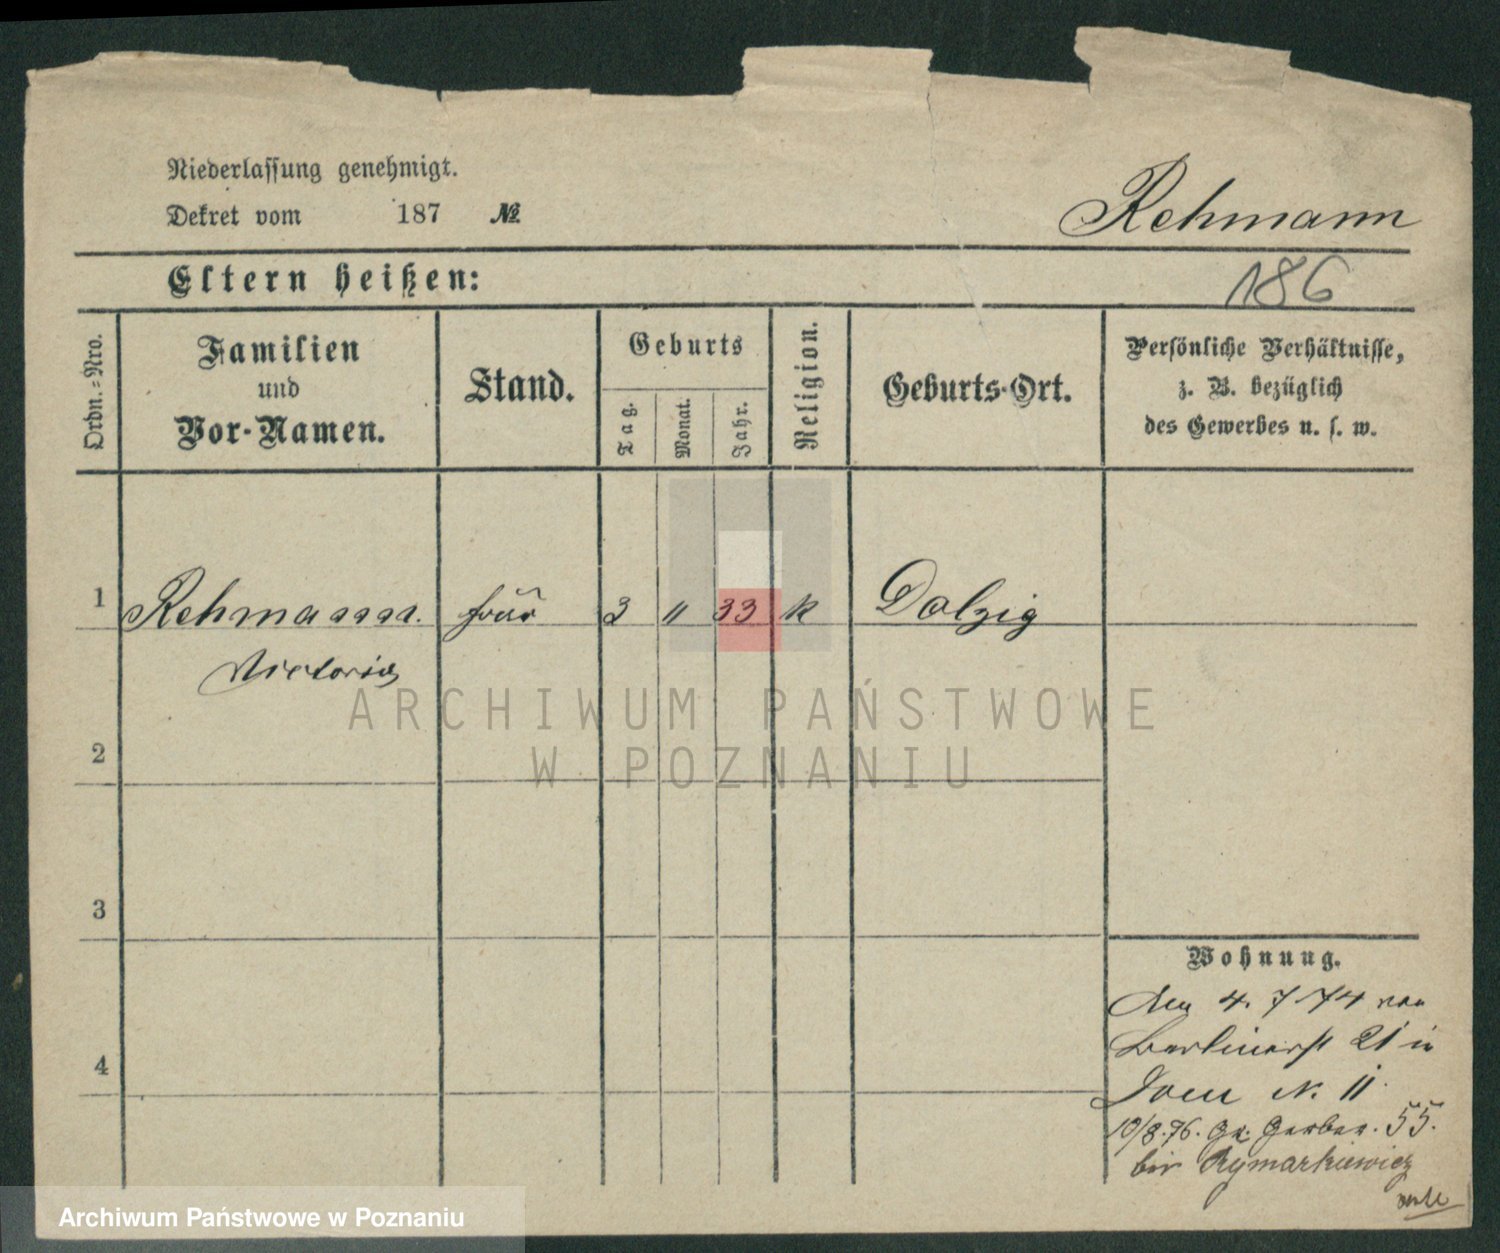 Niederlassung genehmigt.
Dekret vom 187 №
Rehmann
Eltern heißen:
186
Ordn.=Nro.
Familien
und
Vor-Namen.
Stand.
Geburts
Tag.
Monat.
Jahr.
Religion.
Geburts-Ort.
Persönliche Verhältnisse,
z. B. bezüglich
des Gewerbes u. s. w.
1 Rehmann. 3 11 33 k Dolzig
Victoria
ARCHIWUM PAŃSTWOWE
W POZNANIU
2
3
4
Wohnung.
Den 4. 7 74 von
Berlinerst 21 in
Dom N. 11
10/8.76. Gr. Gerber. 55.
bei Rymarkiewicz
Archiwum Państwowe w Poznaniu